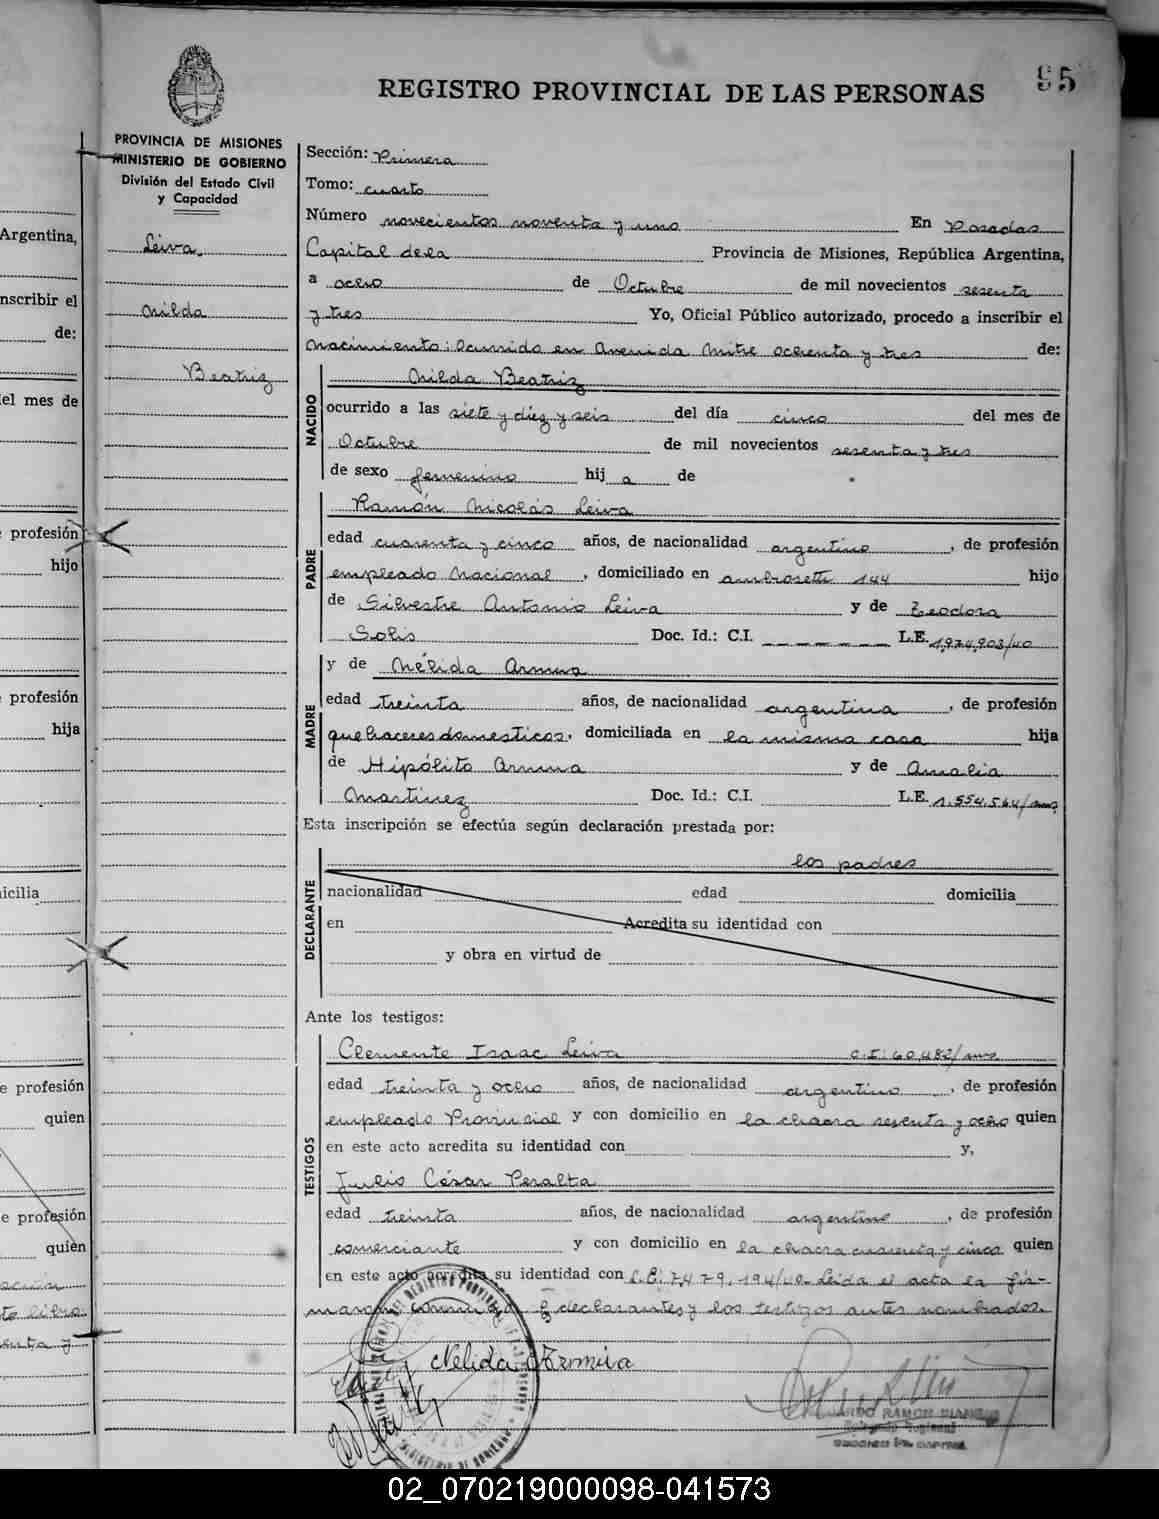 95
REGISTRO PROVINCIAL DE LAS PERSONAS
PROVINCIA DE MISIONES
MINISTERIO DE GOBIERNO
División del Estado Civil
y Capacidad
Leiva,
Nilda
Beatriz
Sección: Primera
Tomo: cuarto
Número novecientos noventa y uno En Posadas
Capital de la Provincia de Misiones, República Argentina,
a ocho de Octubre de mil novecientos sesenta
y tres Yo, Oficial Público autorizado, procedo a inscribir el
Nacimiento: Ocurrido en Avenida Mitre ochenta y tres de:
NACIDO
Nilda Beatriz
ocurrido a las siete y diez y seis del día cinco del mes de
Octubre de mil novecientos sesenta y tres
de sexo femenino hij a de
Ramón Nicolás Leiva
PADRE
edad cuarenta y cinco años, de nacionalidad argentino, de profesión
empleado Nacional, domiciliado en ambrosetti 144 hijo
de Silvestre Antonio Leiva y de Teodora
Solis Doc. Id.: C.I. — — — — — — L.E. 1.974.903/40
y de Nélida Armua
MADRE
edad treinta años, de nacionalidad argentina, de profesión
quehaceres domesticos, domiciliada en la misma casa hija
de Hipólito Armua y de Amalia
Martinez Doc. Id.: C.I. L.E. 1.554.564/
Esta inscripción se efectúa según declaración prestada por:
los padres
DECLARANTE
nacionalidad edad domicilia
en Acredita su identidad con
y obra en virtud de
Ante los testigos:
TESTIGOS
Clemente Isaac Leiva C.I: 60.482/
edad treinta y ocho años, de nacionalidad argentino, de profesión
empleado Provincial y con domicilio en la chacra sesenta y ocho quien
en este acto acredita su identidad con y,
Julio César Peralta
edad treinta años, de nacionalidad argentino, de profesión
comerciante y con domicilio en la chacra cuarenta y cinco quien
en este acto acredita su identidad con L.E: 7.479.194/40. Leida el acta la fir-
man conmigo declarantes y los testigos antes nombrados.
Nelida Armua
RAMON
Argentina,
nscribir el
de:
el mes de
profesión
hijo
profesión
hija
icilia
e profesión
quien
e profesión
quien
02_070219000098-041573